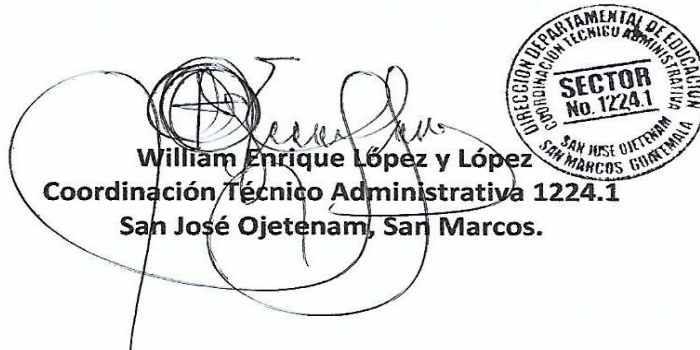 DIRECCIÓN DEPARTAMENTAL DE EDUCACIÓN
COORDINACIÓN TÉCNICO ADMINISTRATIVA
SECTOR
No. 1224.1
SAN JOSE OJETENAM
SAN MARCOS GUATEMALA
William Enrique López y López
Coordinación Técnico Administrativa 1224.1
San José Ojetenam, San Marcos.